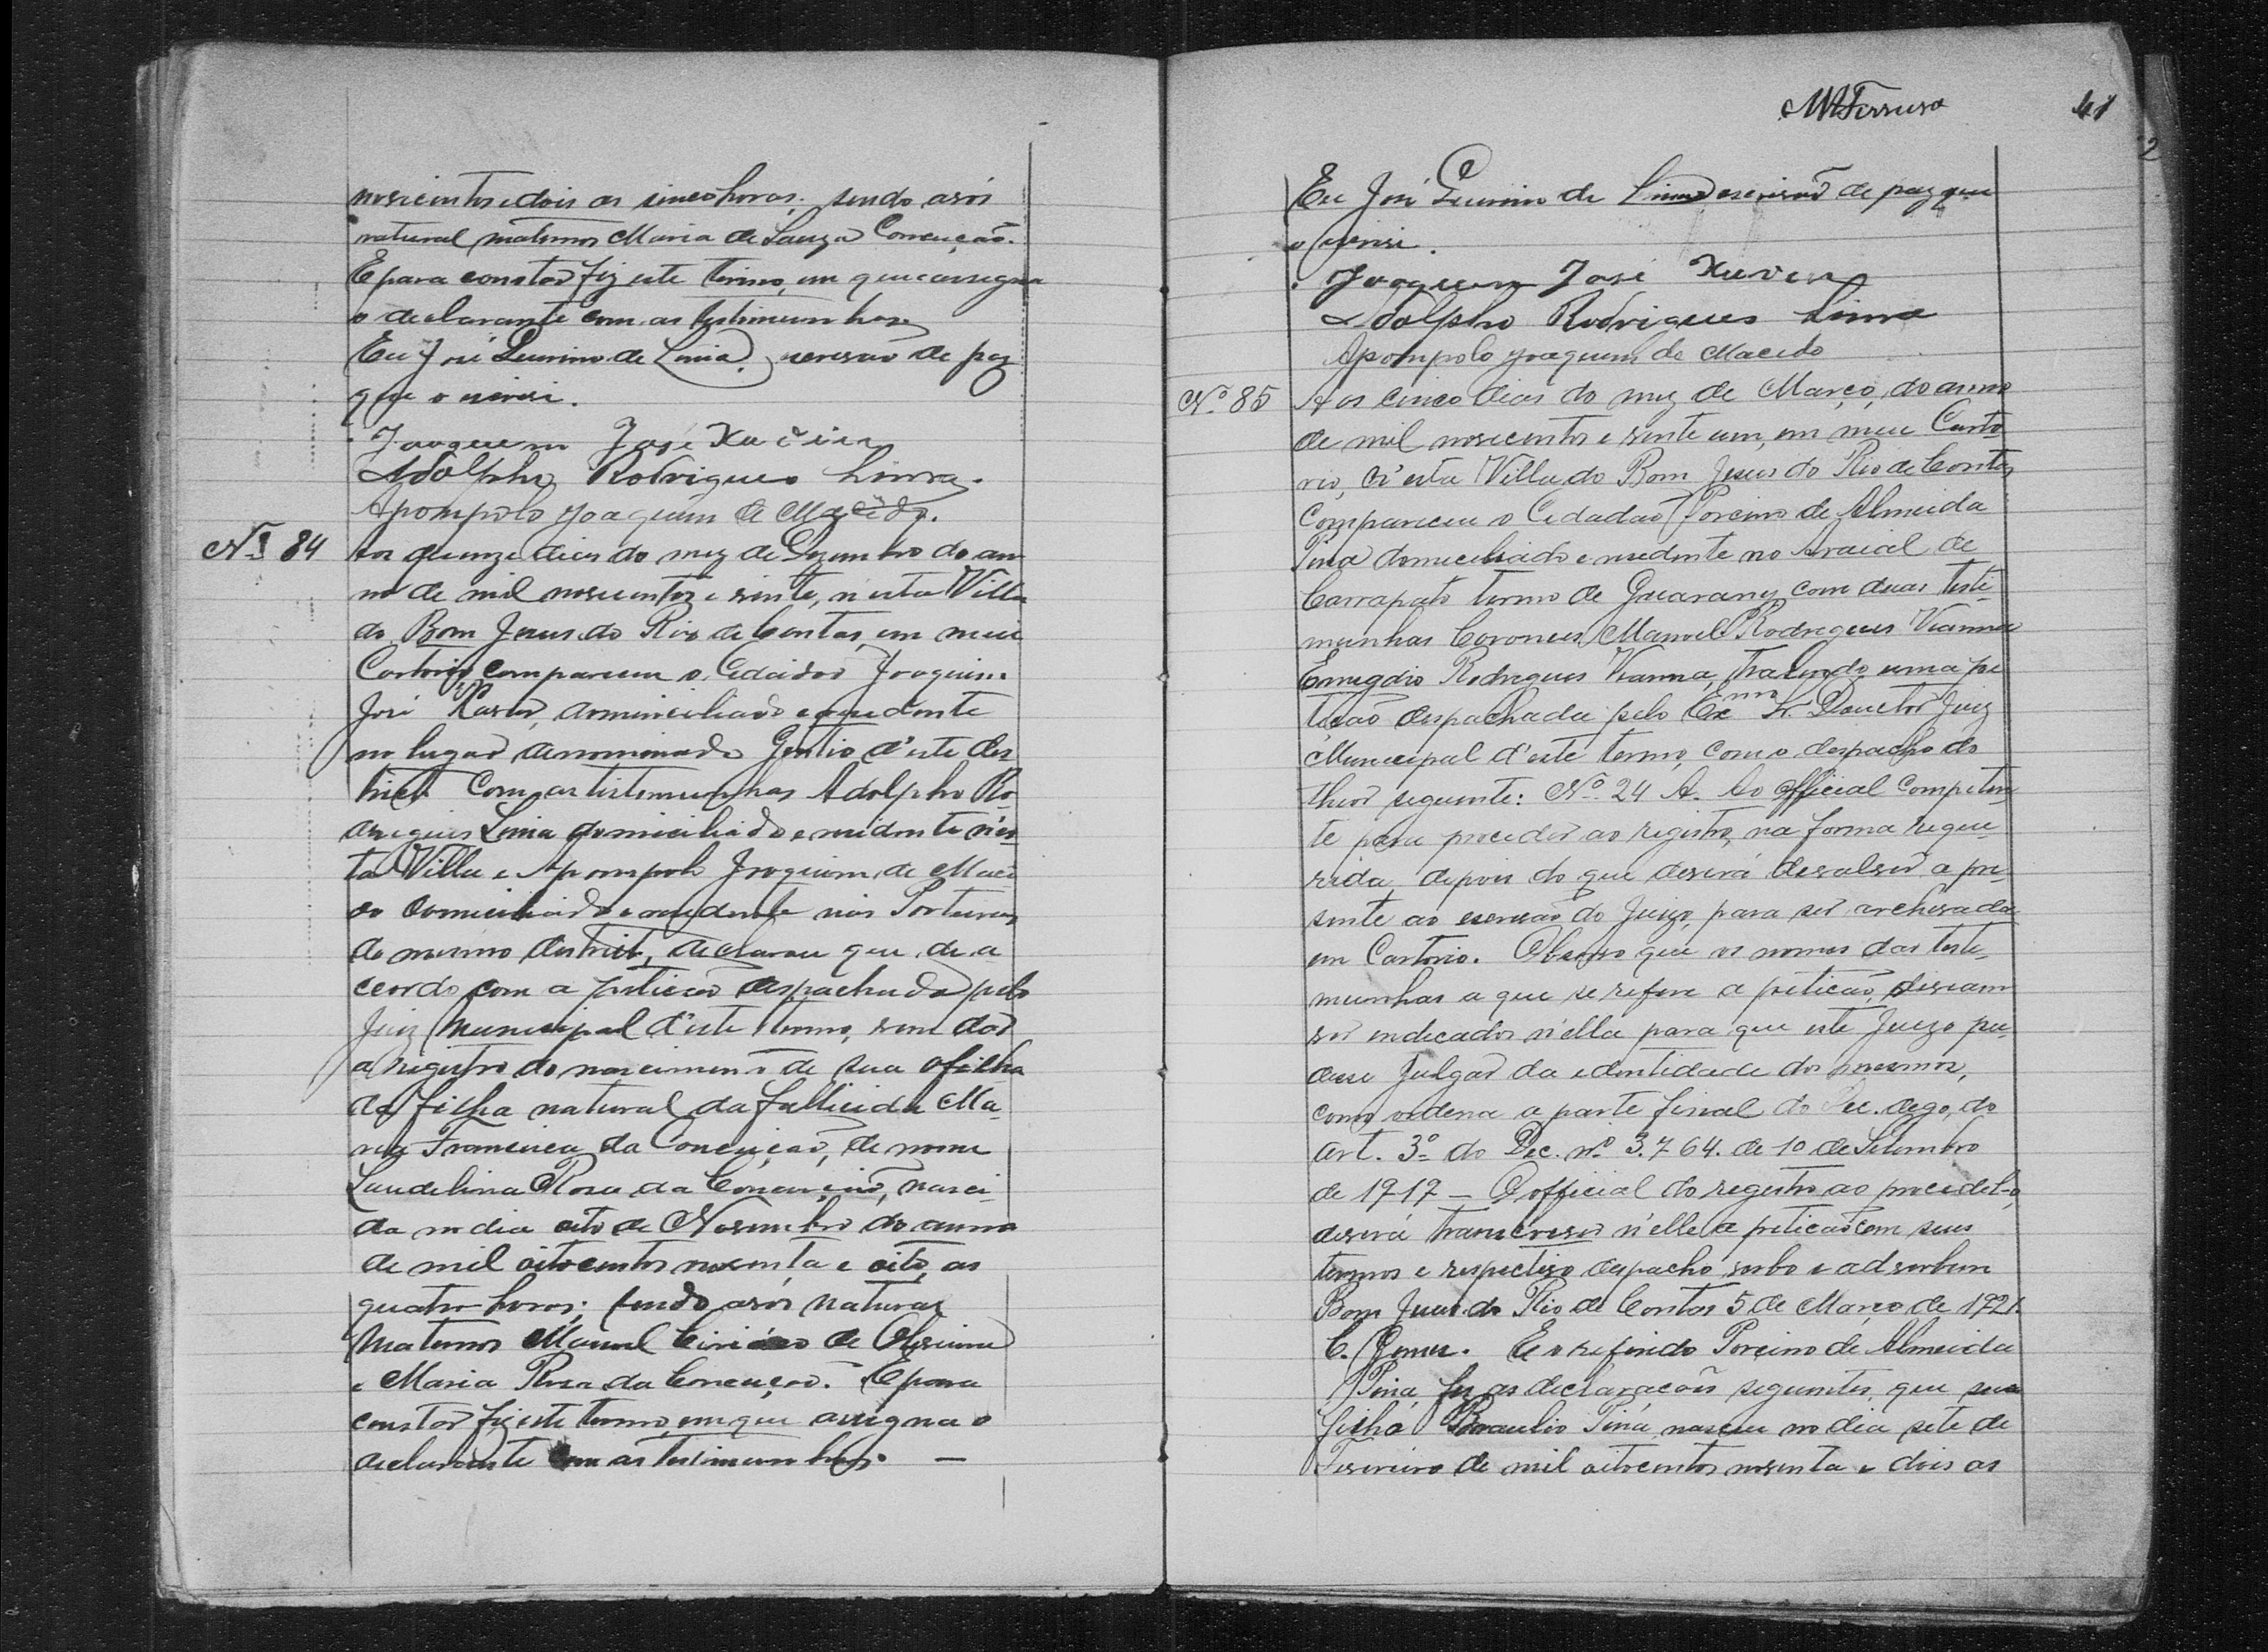 nosicentos e dois as sinco horas; sendo avós
natural maternos Maria de Souza Conceição.
E para constar fiz este termo, em que assigna
o declarante com as testimunhas
Eu José Guirino de Lima, escrivão de paz
que o escrivi.
Joaquim José Xavier
Adolpho Rodrigues Lima.
Apompolo Joaquim de Macêdo.
Nº 84
Aos quinze dias do mez de Dezembro do an
no de mil novicentos e vinte, n'esta Villa
do Bom Jesus do Rio de Contas, em meu
Cartorio, compareceu o Cidadão Joaquim
José Xavier, domiciliado e residente
no lugar denominado Gentio d'este des
tricto com as testemunhas Adolpho Ro
drigues Lima domiciliado e residente n'es
ta Villa e Apompolo Joaquim de Macê
do domiciliado e residente nos
do mesmo destricto, declarou que, de a
ccordo com a petição despachada pelo
Juiz Municipal d'este termo, vem dar
a registro do nascimento de sua afilha
da filha natural da fallicida Ma
ria Francisca da Conceição, de nome
Laudelina Rosa da Conceição, nasci
da no dia oito de Novembro do anno
de mil oitocentos noventa e oito, as
quatro horas; sendo avós naturaz
maternos Manoel de Oliveira
e Maria Rosa da Conceição. E para
constar fiz este termo, em que assigna o
declarante com as testimunhas. —
41
2
Eu José Guirino de Lima escrivão de paz que
o escrivi.
Joaquim José Xavier
Adolpho Rodrigues Lima
Apompolo Joaquim de Macedo
Nº 85
Aos cinco dias do mez de Março, do anno
de mil novicentos e vinte um, em meu Carto
rio, n'esta Villa do Bom Jesus do Rio de Contas,
Compareceu o Cidadão Porcino de Almeida
Pina domiciliado e residente no Arraial de
Carrapato termo de Guarany com duas teste
munhas Coroneis Manoel Rodrigues Vianna
Emygdio Rodrigues Vianna, trazendo uma pe
tição despachada pelo Exmo Sr. Douctor Juiz
Municipal d'este termo, com o despacho do
theor seguinte: Nº 24 A. Ao official Competen
te para proceder ao registro, na forma reque
rida, depois do que deverá devolver a pre
sente ao escrivão do Juizo, para ser archivada
em Cartorio. Observo que os nomes das teste
munhas a que se refere a petição, deviam
ser indicados n'ella para que este Juizo pu
desse Julgar da identidade dos mesmos,
como ordena a parte final do do
art. 3º do Dec. nº 3.764. de 10 de Setembro
de 1917 — O official do registro ao procedel-o,
deverá transcrever n'elle a petição com seus
termos e respectivo despacho verbo e ad verbum
Bom Jesus do Rio de Contas 5 de Março de 1921.
C. Gomes. E o referido Porcino de Almeida
Pina, fez as declarações seguintes, que seu
filho Braulio Pina, nasceu no dia sete de
Fevereiro de mil oitocentos noventa e dois as